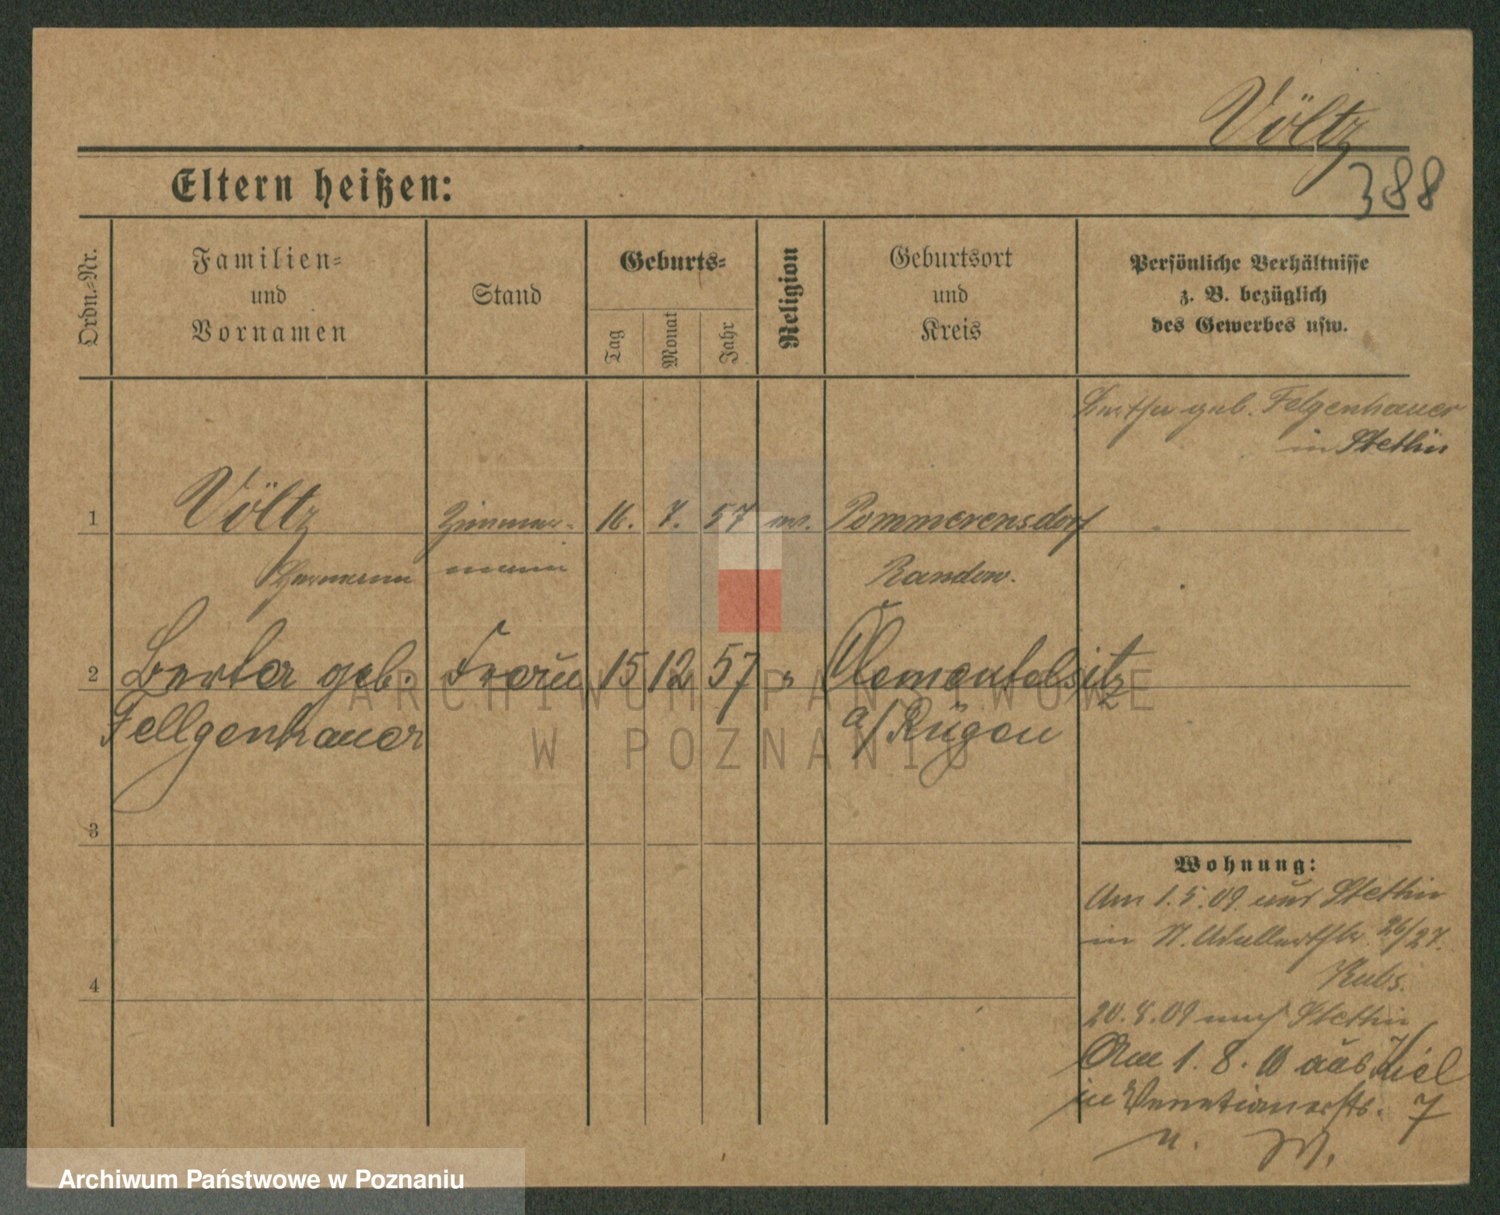 Völtz
388
Eltern heißen:
Ordn.-Nr.
Familien-
und
Vornamen
Stand
Geburts-
Tag
Monat
Jahr
Religion
Geburtsort
und
Kreis
Persönliche Verhältnisse
z. B. bezüglich
des Gewerbes usw.
geb. Felgenhauer
in Stettin
1 Völtz Zimmer- 16. 7. 57 Pommerensdorf
Hermann mann Randow.
2 Berta geb. Frau 15 12 57 "
Fellgenhauer a/Rügen
3
4
Wohnung:
Am 1.5.09 aus Stettin
in N. 26/27.
20.8.09 nach Stettin
Am 1.8.10 aus Kiel
in Venetianerstr. 7
ARCHIWUM PAŃSTWOWE
W POZNANIU
Archiwum Państwowe w Poznaniu